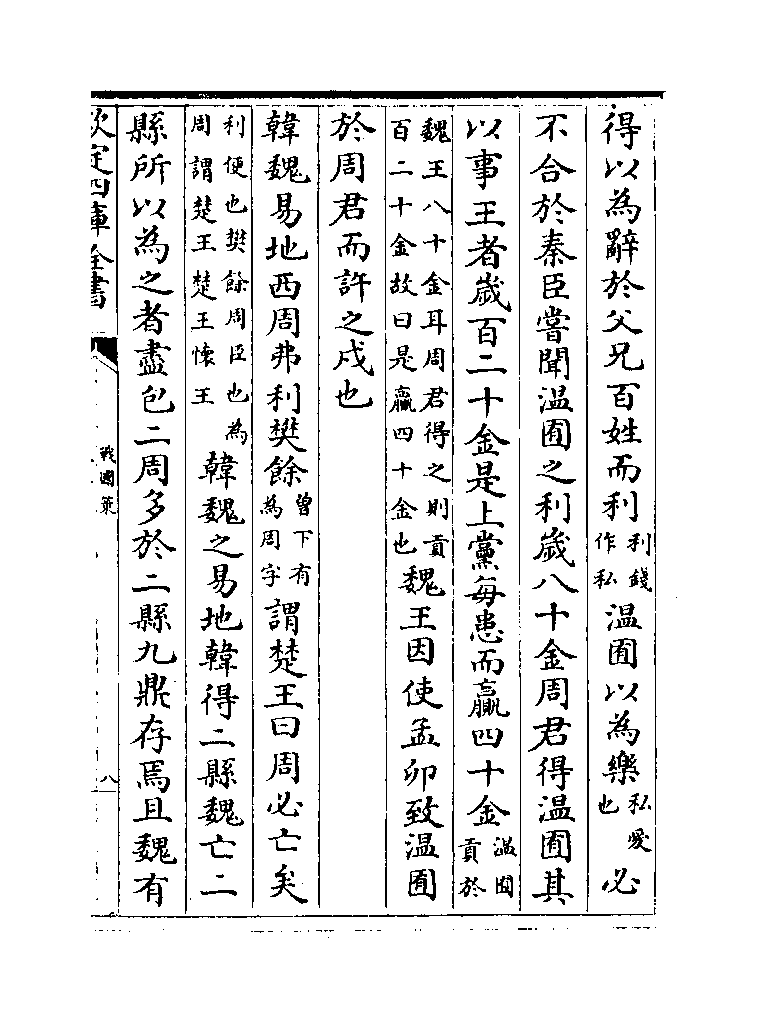 得以為辭於父兄百姓而利利錢作私温囿以為樂私愛也必
不合於秦臣嘗聞温囿之利歲八十金周君得温囿其
以事王者歲百二十金是上黨每患而贏四十金温囿貢於
魏王八十金耳周君得之則貢百二十金故曰是贏四十金也魏王因使孟卯致温囿
於周君而許之戍也
韓魏易地西周弗利樊餘曾下有為周字謂楚王曰周必亡矣
利便也樊餘周臣也為周謂楚王楚王懷王韓魏之易地韓得二縣魏亡二
縣所以為之者盡包二周多於二縣九鼎存焉且魏有
欽定四庫全書
戰國策
八